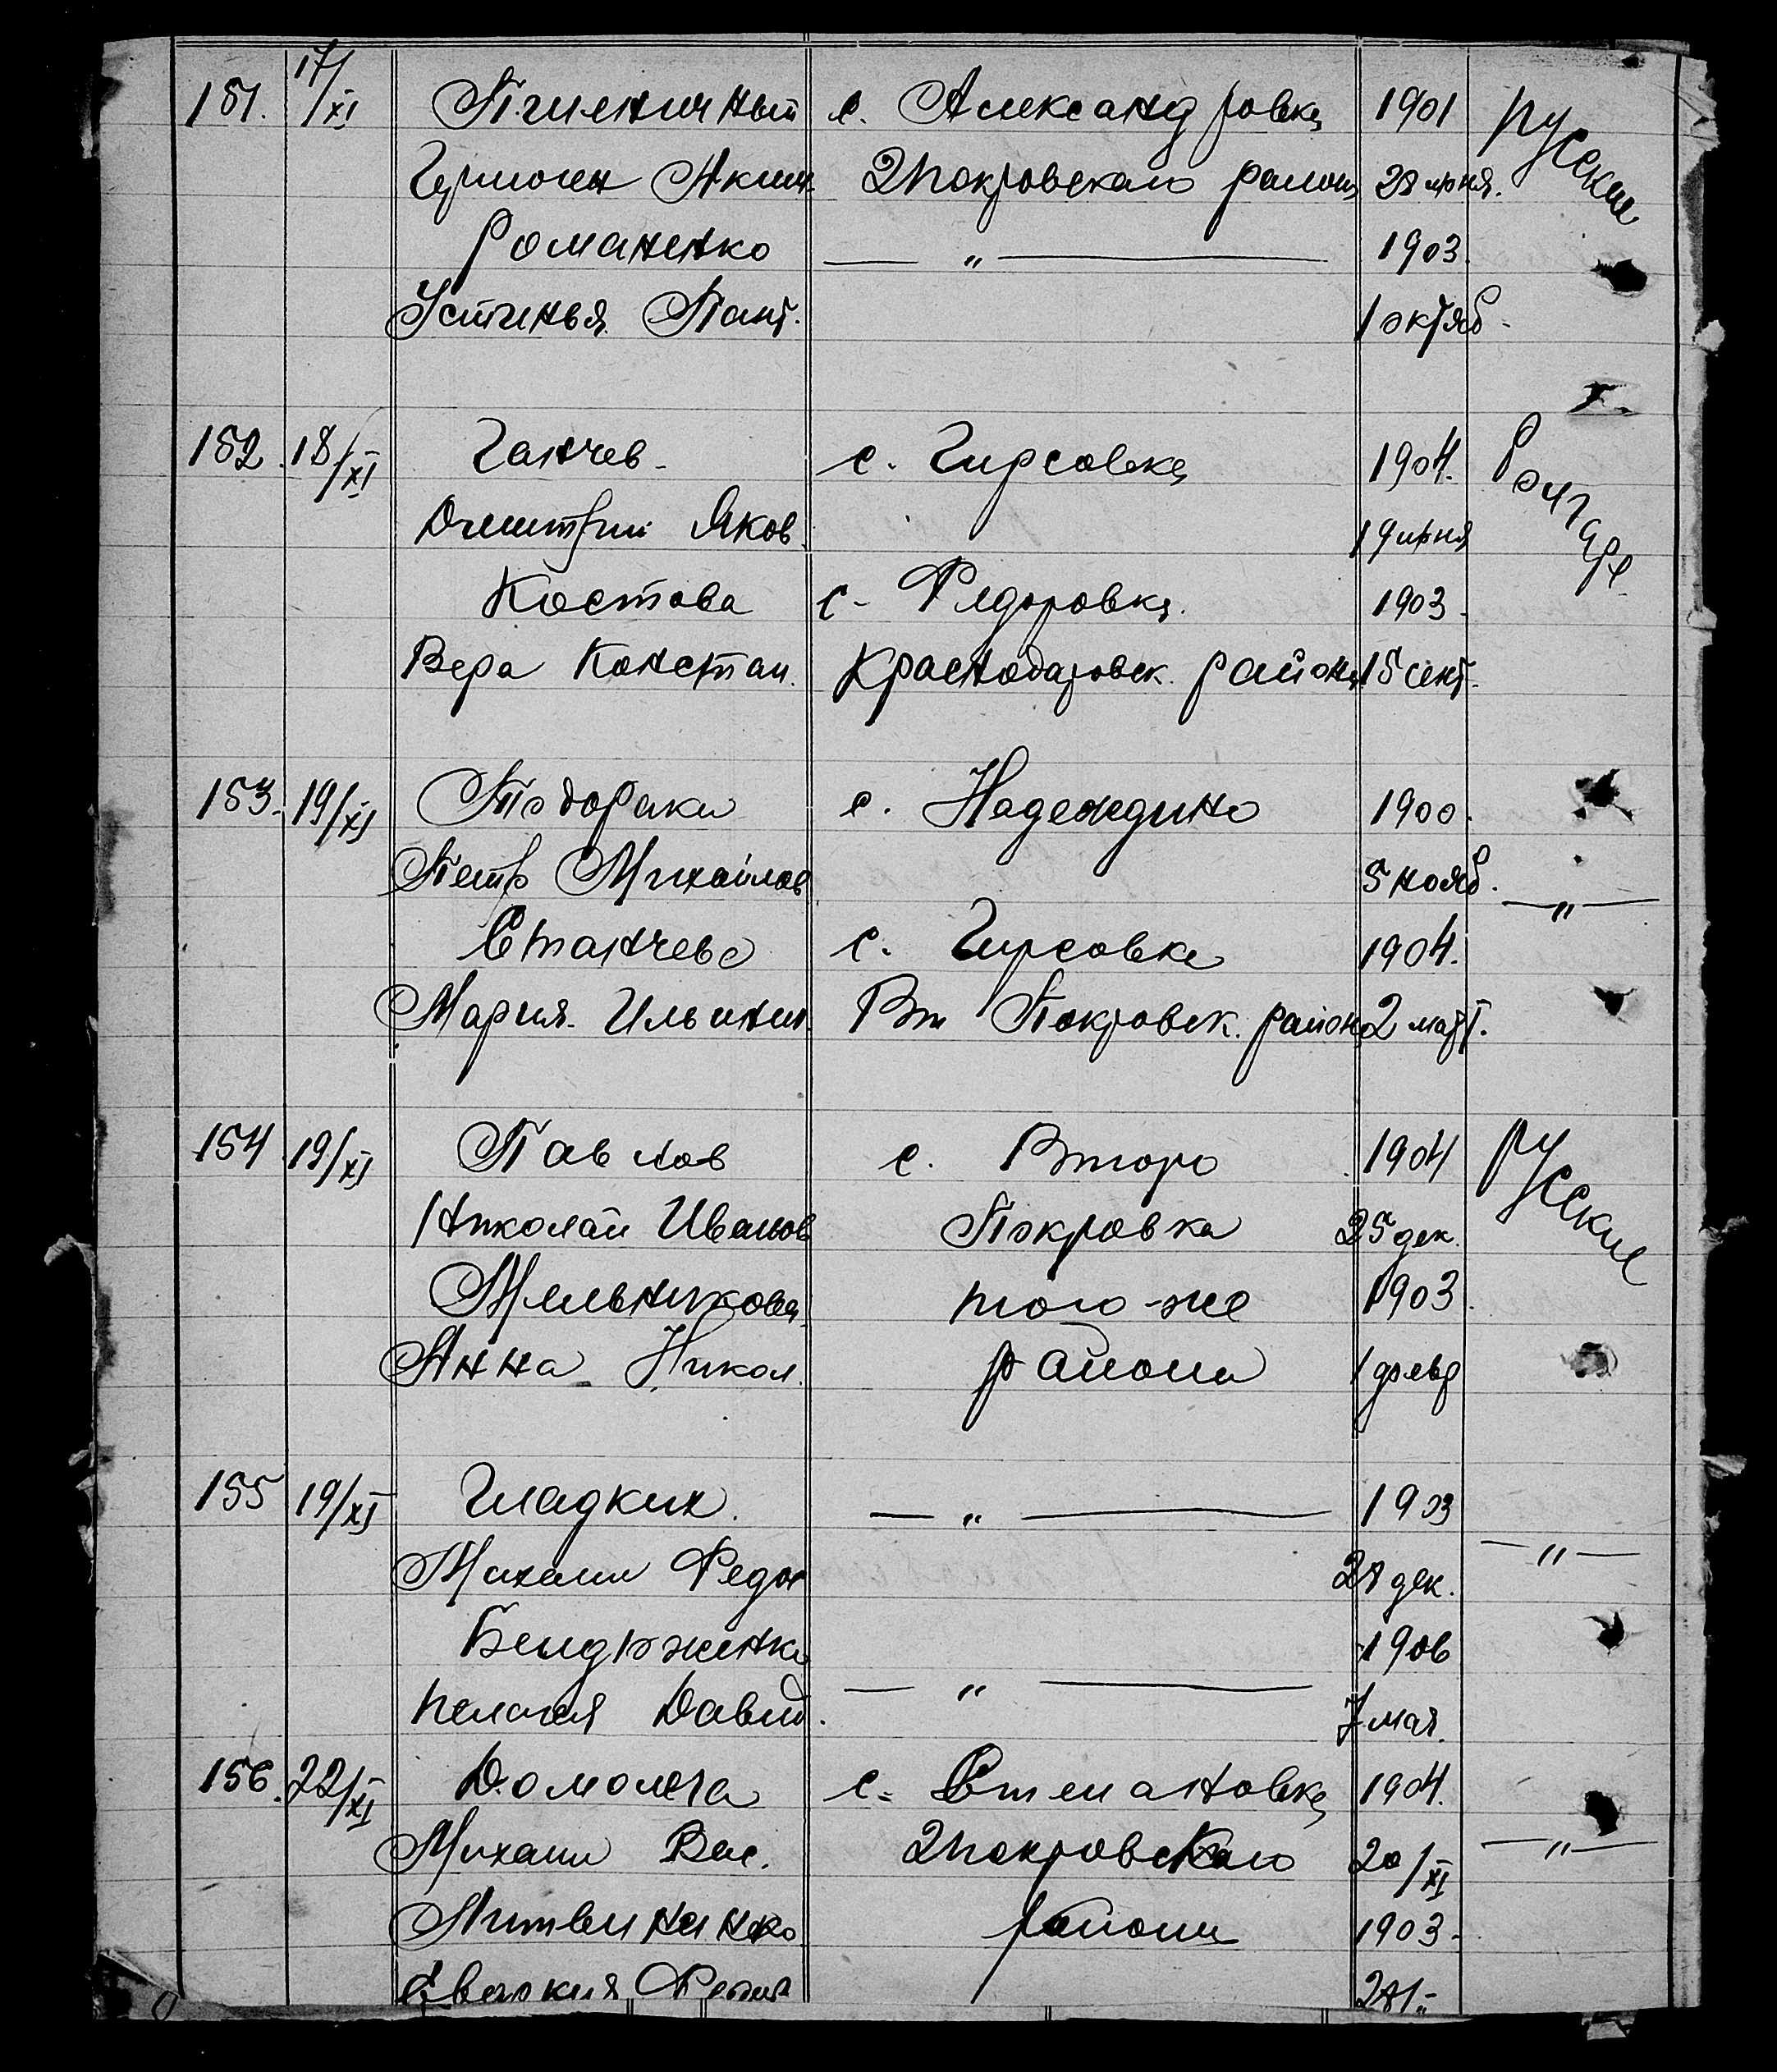 151. 17/XI Пшеничный с. Александровка 1901 русские
Гермоген Аким. 2Покровского района 28 июня.
Романенко — " — 1903.
Устинья Пант. 1 октяб.
152. 18/XI Ганчев с. Гирсовка 1904. Болгаре
Дмитрий Яков. 19 июня
Костова с. Федоровка. 1903.
Вера Констан. Краснодаровск. района 15 сент.
153. 19/XI Тодораки с. Надеждино 1900.
Петр Михайлов 5 нояб. — " —
Станчева с. Гирсовка 1904.
Мария Ильинич. Вт Покровск. района 2 март.
154 19/XI Павлов с. Второ 1904 русские
Николай Иванов Покровка 25 дек.
Мельникова того-же 1903.
Анна Никол. района 1 февр
155 19/XI Гладких. — " — 1903
Михаил Федор 28 дек. — " —
1906
Пелагея Давид. — " — 7 мая.
156. 22/XI Домолега с. Степановка 1904.
Михаил Вас. 2Покровского 20/XI — " —
Литвиненко района 1903.